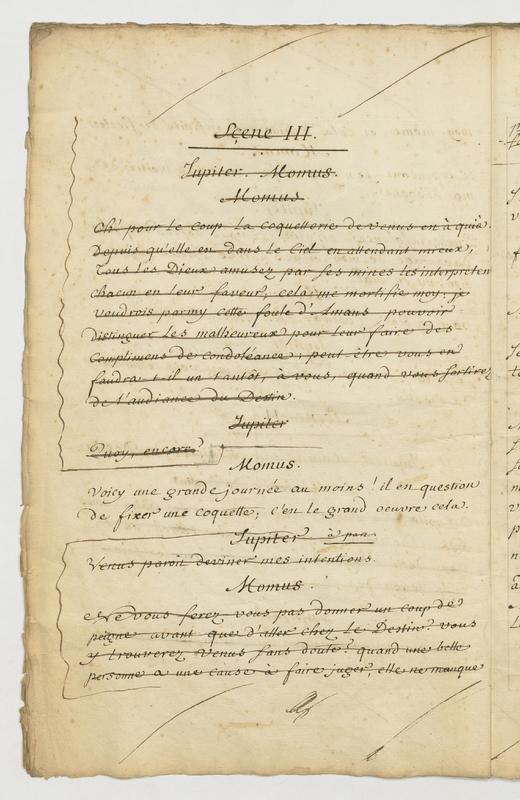 Scene III.
Jupiter. Momus.
Momus
Oh! pour le coup la coquetterie de Venus en à quia.
Depuis qu'elle en dans le Ciel en attendant mieux,
Tous les Dieux amusez par ses mines les interpreten
chacun en leur faveur, cela me mortifie moy: je
voudrois parmy cette foule d'Amans pouvoir
distinguer les malheureux pour leur faire des
complimens de condoléance; peut être vous en
faudra t-il un tantôt, à vous, quand vous sortirez
de l'audiance du Destin.
Jupiter
Quoy, encore
Momus.
Voicy une grande journée au moins! il en question
de fixer une coquette; c'en le grand oeuvre cela.
Jupiter à part
Venus paroit deviner mes intentions.
Momus.
Ne vous ferez vous pas donner un coup de
peigne avant que d'aller chez le Destin? vous
y trouverez Venus sans doute! quand une belle
personne a une cause à faire juger, elle ne manque